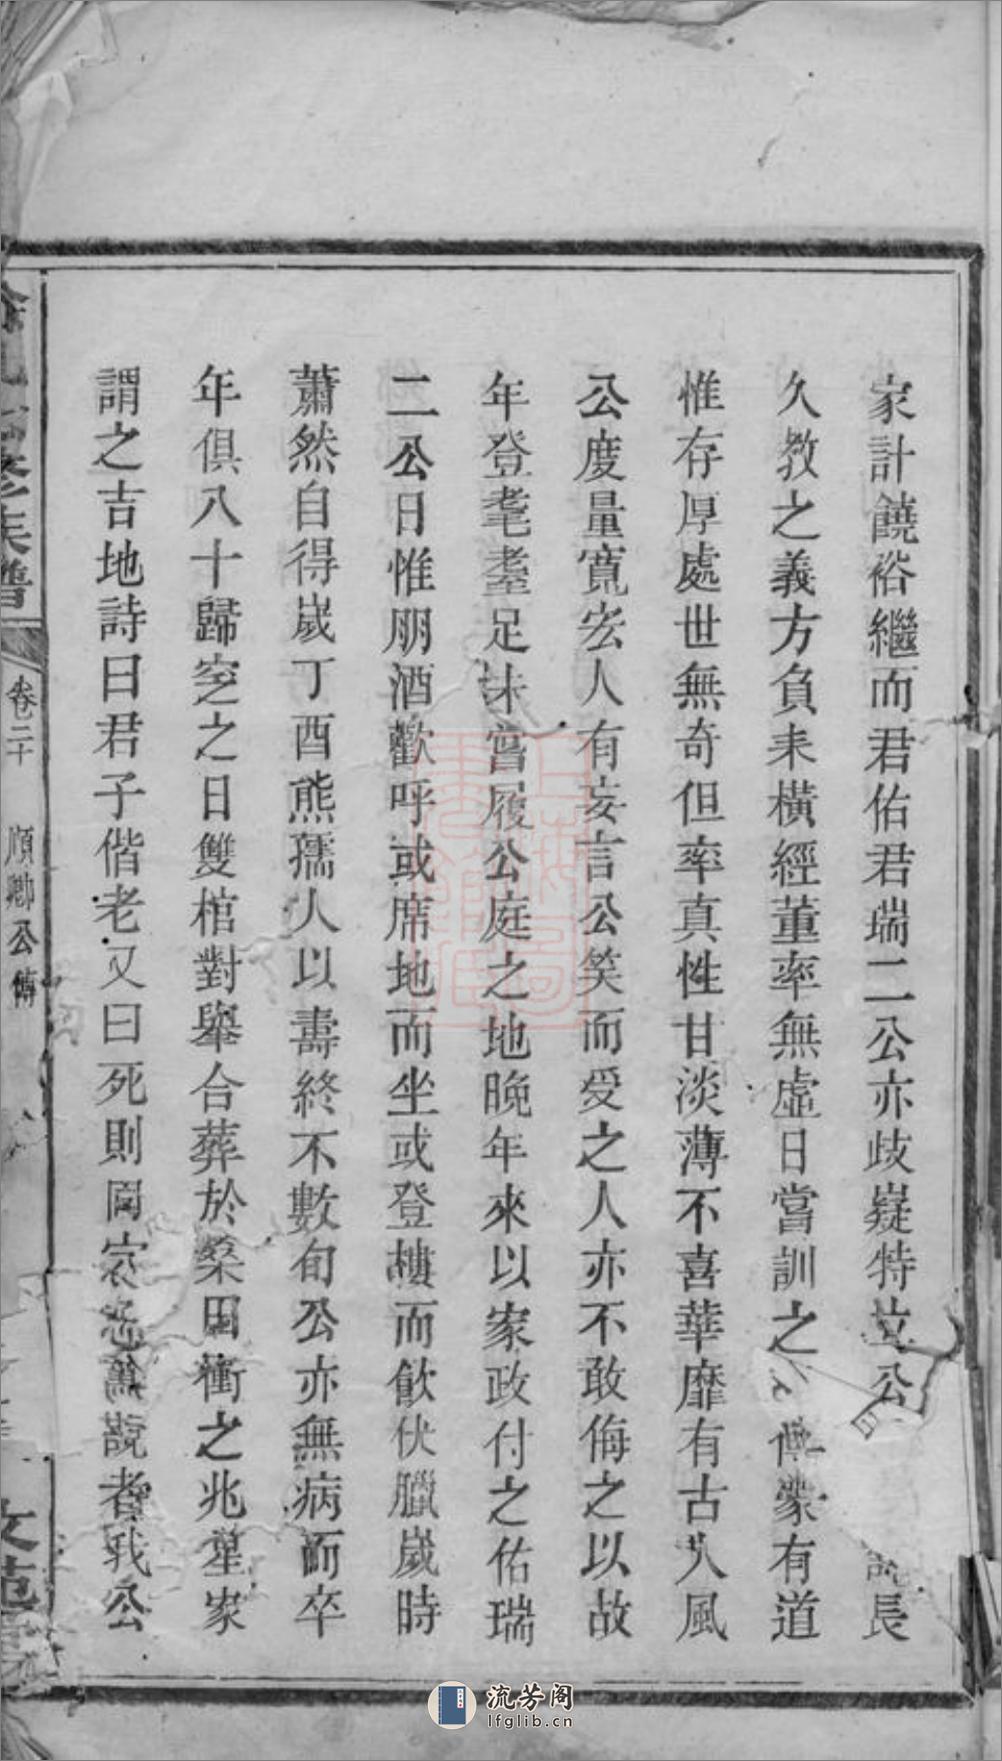 家計饒裕繼而君佑君瑞二公亦歧嶷特立公長
久教之義方負耒橫經董率無虛日嘗訓之傳家有道
惟存厚處世無奇但率真性甘淡薄不喜華靡有古人風
公度量寬宏人有妄言公笑而受之人亦不敢侮之以故
年登耄耋足未嘗履公庭之地晚年來以家政付之佑瑞
二公日惟朋酒歡呼或席地而坐或登樓而飲伏臘歲時
蕭然自得歲丁酉熊孺人以壽終不數旬公亦無病而卒
年俱八十歸窆之日雙棺對舉合葬於桑田衝之兆堂家
謂之吉地詩曰君子偕老又曰死則同穴說者我公
族譜
卷二十
順卿公傳
流芳阁
lfglib.cn